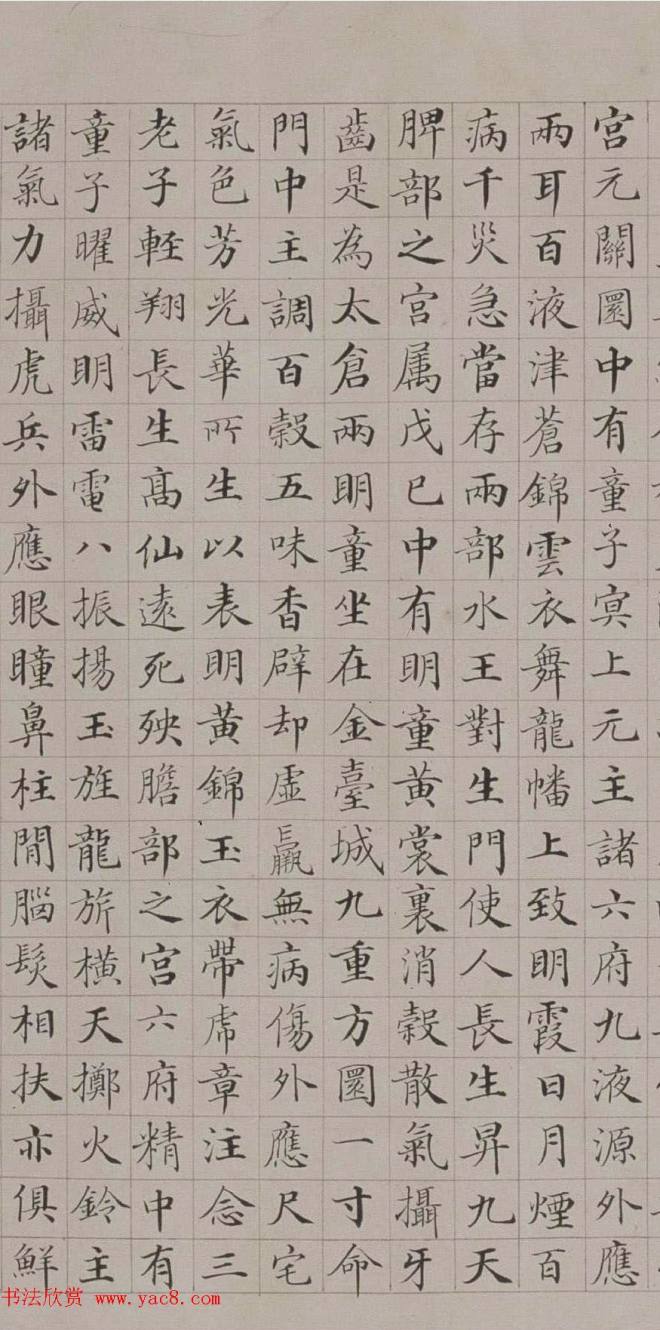 宫元關圎中有童子㝠上元主諸六府九液源外應
兩耳百液津蒼錦雲衣舞龍幡上致明霞日月煙百
病千災急當存兩部水王對生門使人長生昇九天
脾部之宫属戊巳中有明童黄裳裏消榖散氣攝牙
齒是為太倉兩明童坐在金臺城九重方圎一寸命
門中主調百榖五味香辟却虛羸無病傷外應尺宅
氣色芳光華所生以表明黄錦玉衣帶虎章注念三
老子輕翔長生髙仙逺死殃膽部之宫六府精中有
童子曜威明雷電八振揚玉旌龍旂橫天擲火鈴主
諸氣力攝虎兵外應眼瞳鼻柱間腦髮相扶亦俱鮮
书法欣赏 www.yac8.com